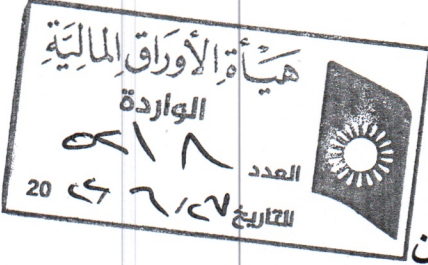 هَيْأَةُ الأَوْرَاقِ المَالِيَّةِ
الواردة
العدد ٥٢١٨
للتاريخ ٢٧/٦/ 20
ن